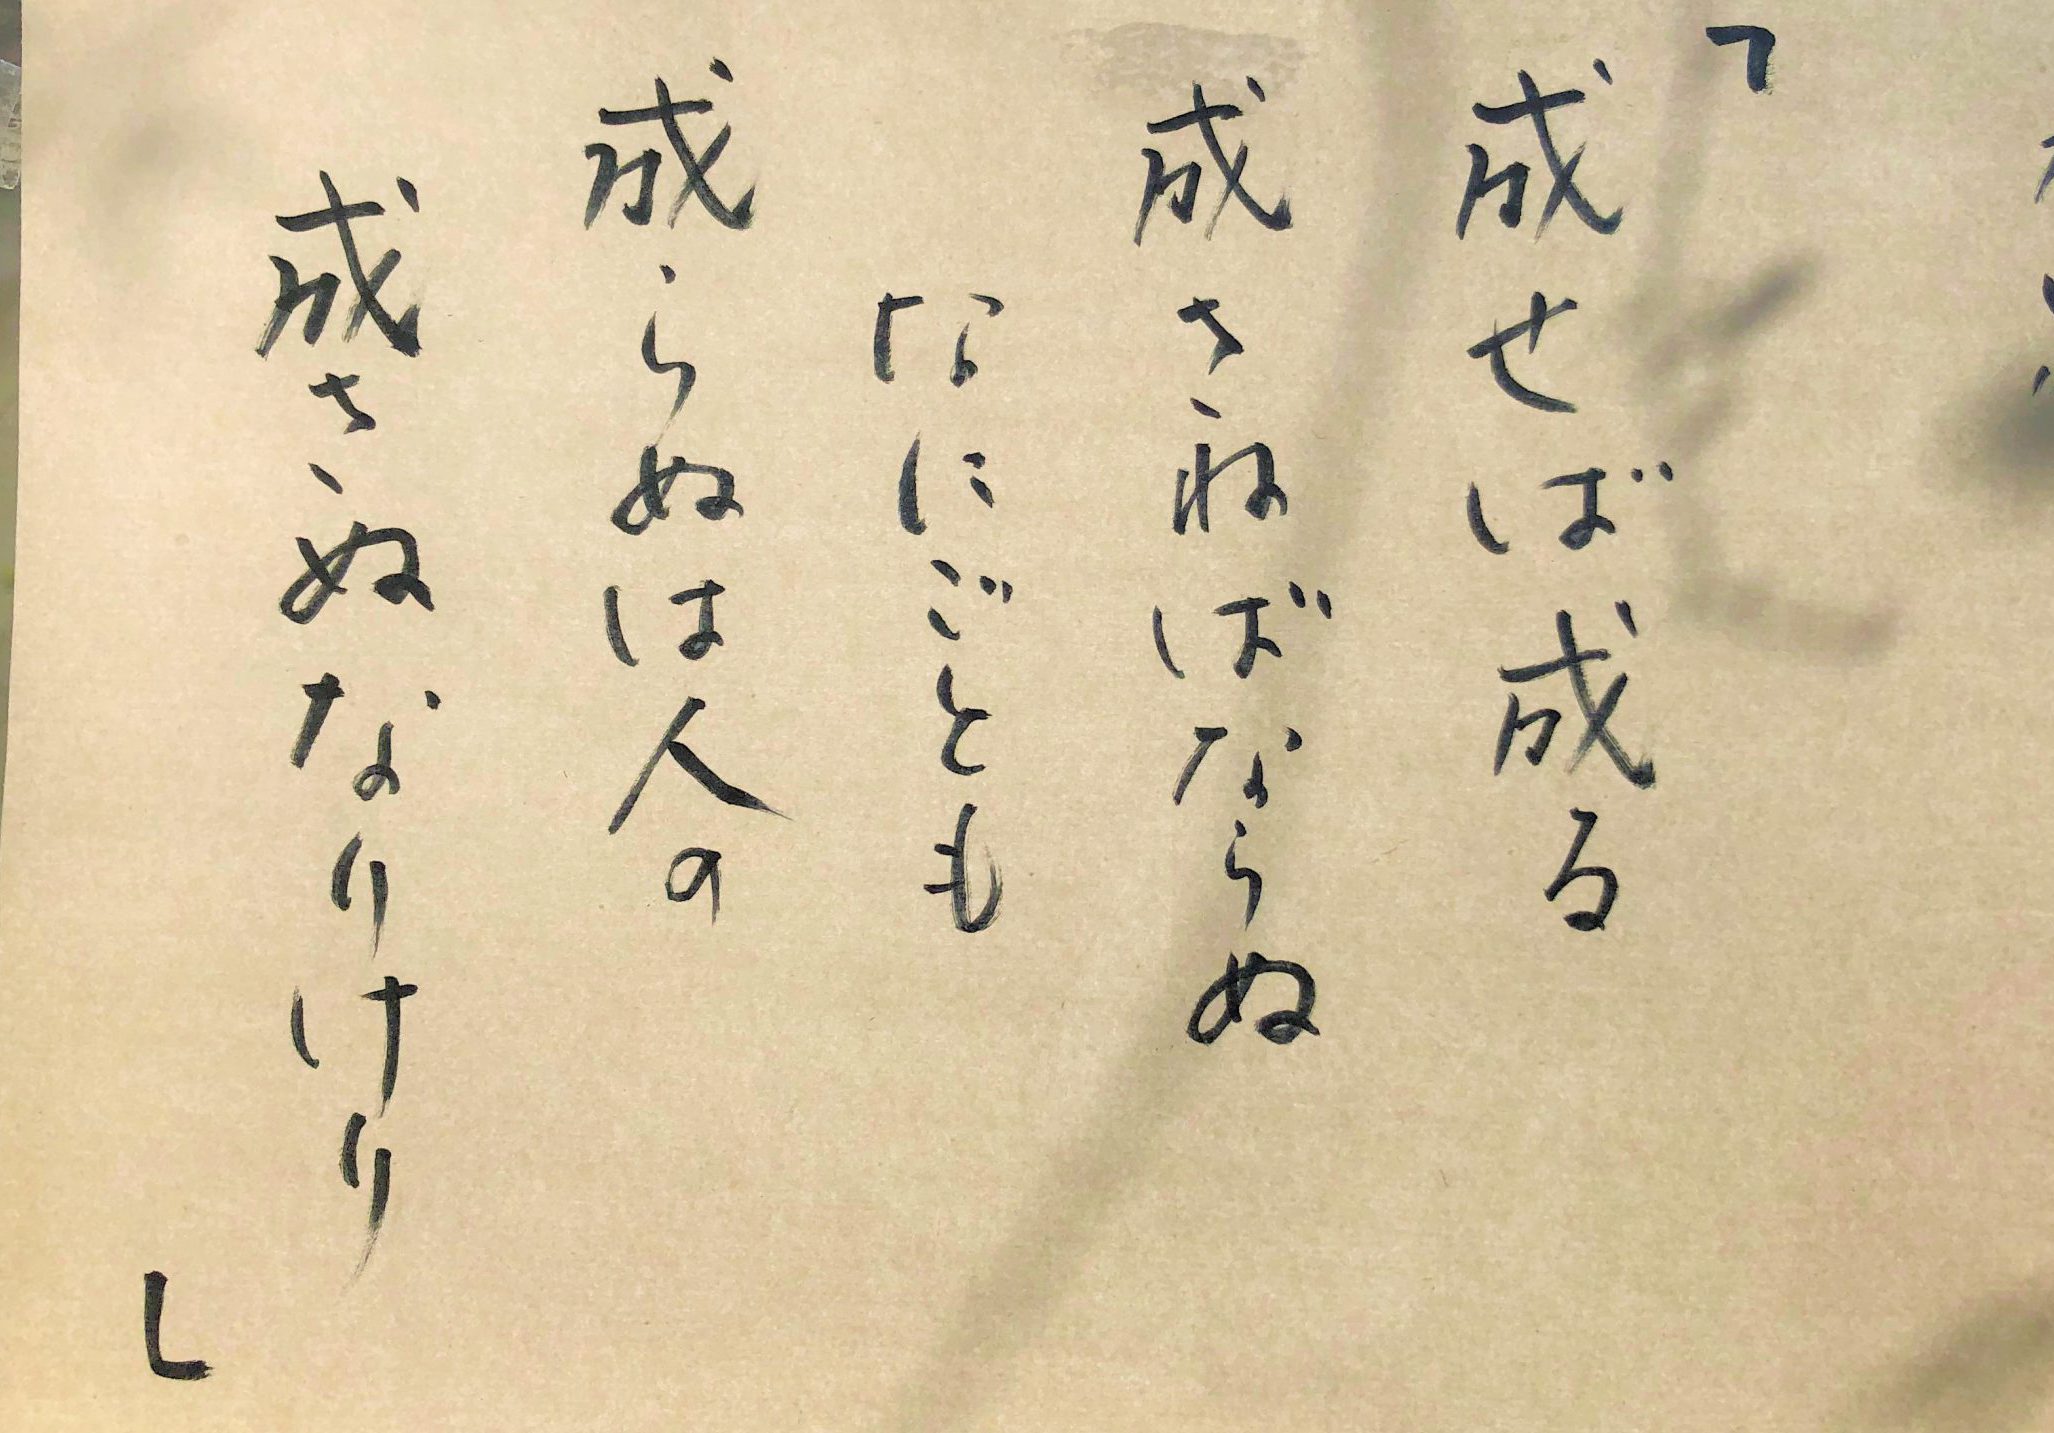 「成せば成る
成さねばならぬ
なにごとも
成らぬは人の
成さぬなりけり」